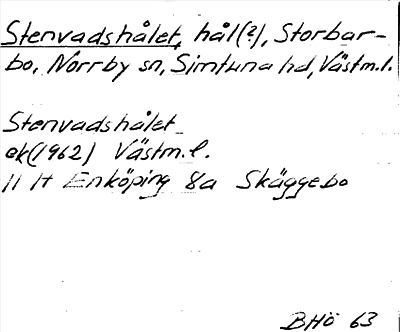 Stenvadshålet, hål(?), Storbar-
bo, Norrby sn, Simtuna hd, Västm.l.
Stenvadshålet
ek(1962) Västm.l.
11 H Enköping 8a Skäggebo
BHö 63